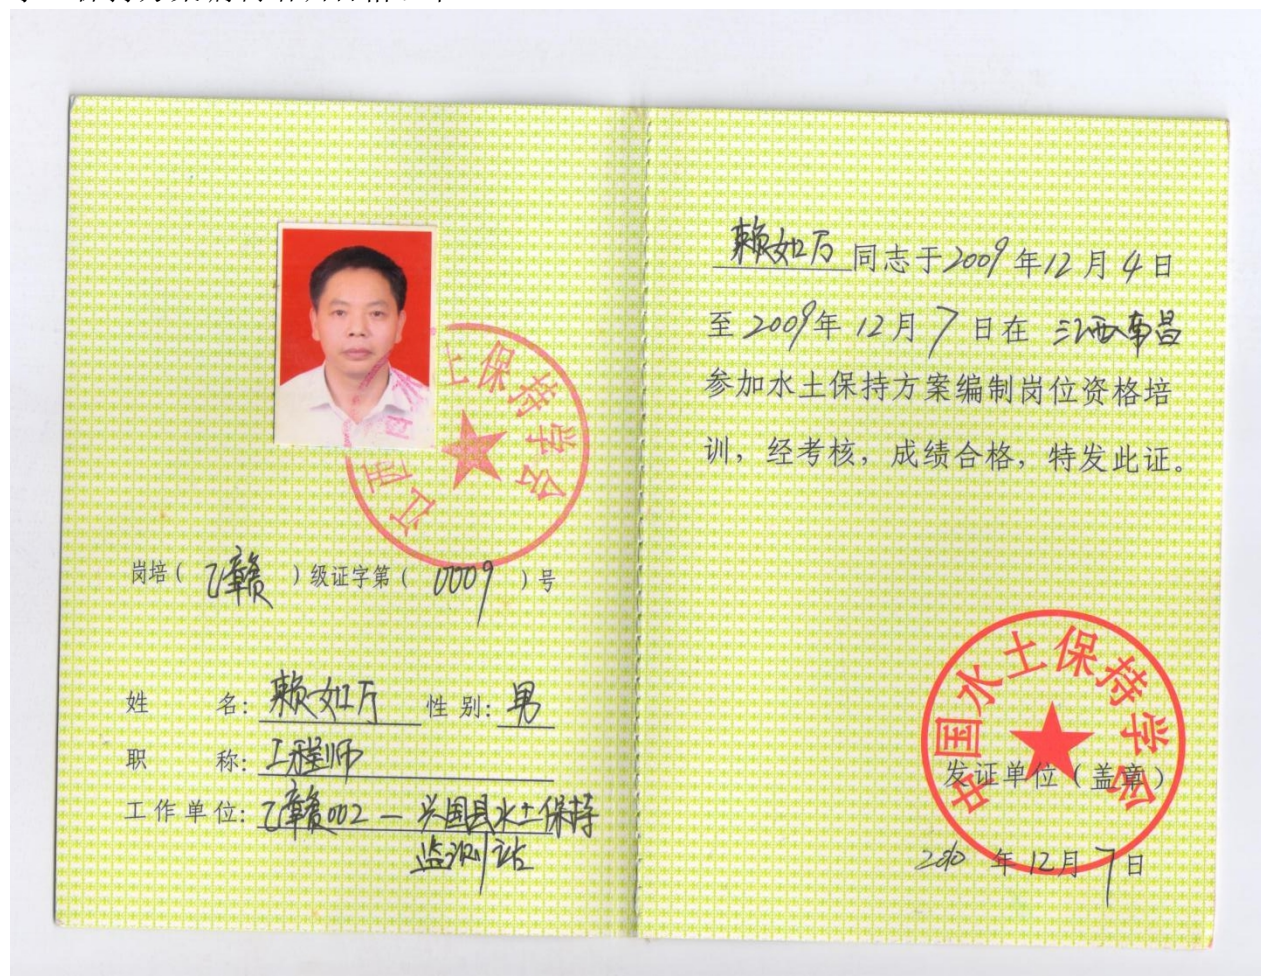 岗培（乙赣）级证字第（0009）号
姓 名：赖如万 性别：男
职 称：工程师
工作单位：乙赣002－兴国县水土保持
监测站
江西水土保持学会
赖如万同志于2009年12月4日
至2009年12月7日在江西南昌
参加水土保持方案编制岗位资格培
训，经考核，成绩合格，特发此证。
中国水土保持学会
发证单位（盖章）
2010年12月7日